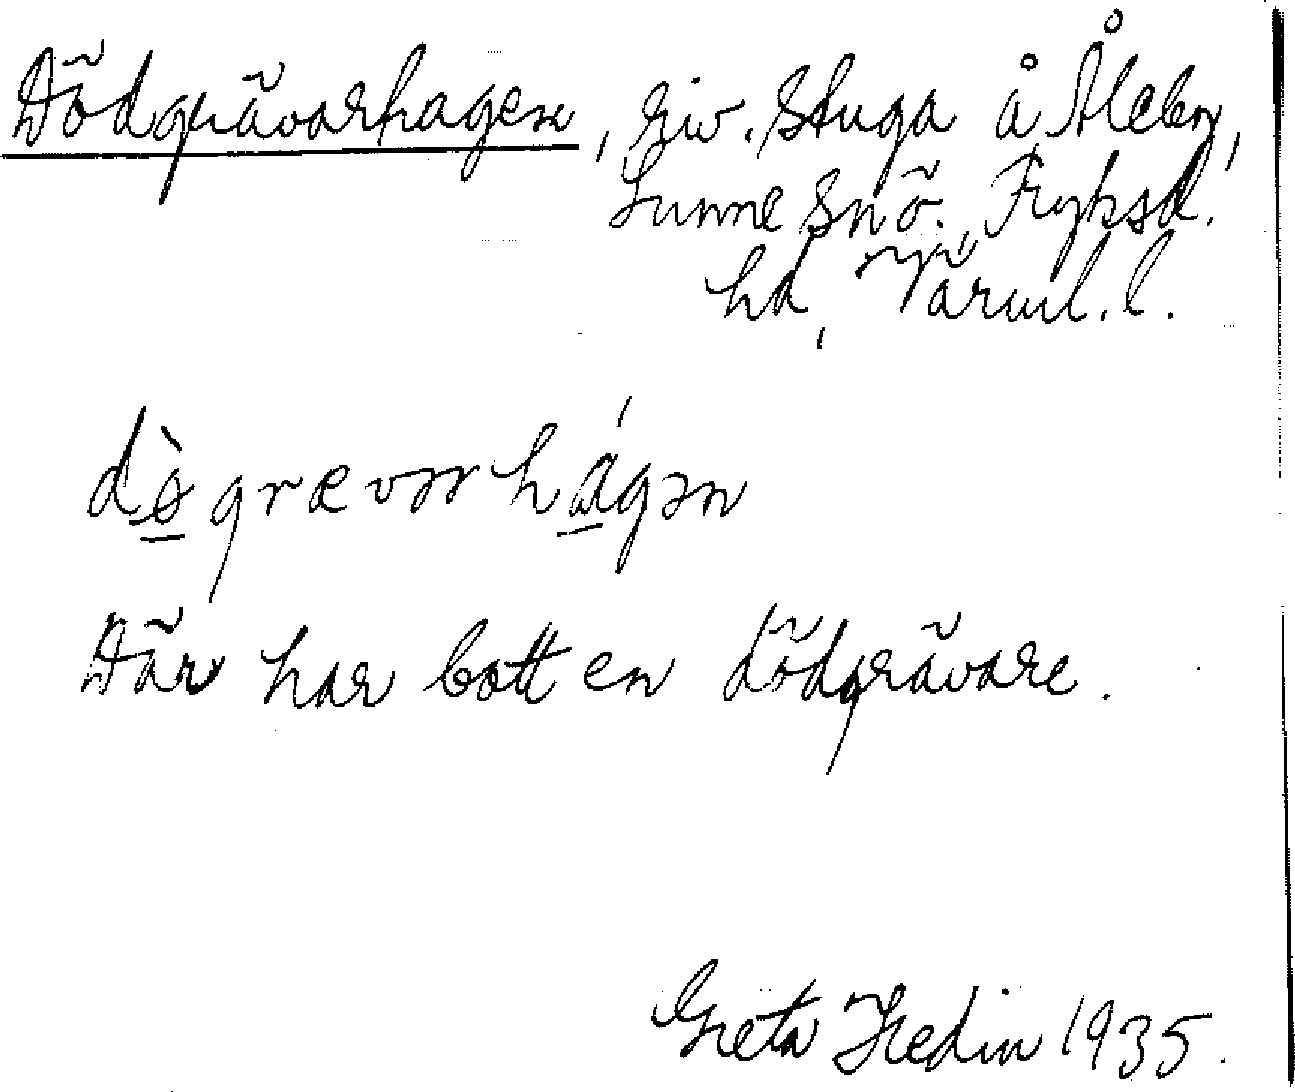 Dödgrävarhagen, riv. Stuga å Åleby,
Sunne snö. Fryksd.
hd, Värml. l.
dø̀grævərhágən
Där har bott en dödgrävare.
Greta Hedin 1935.